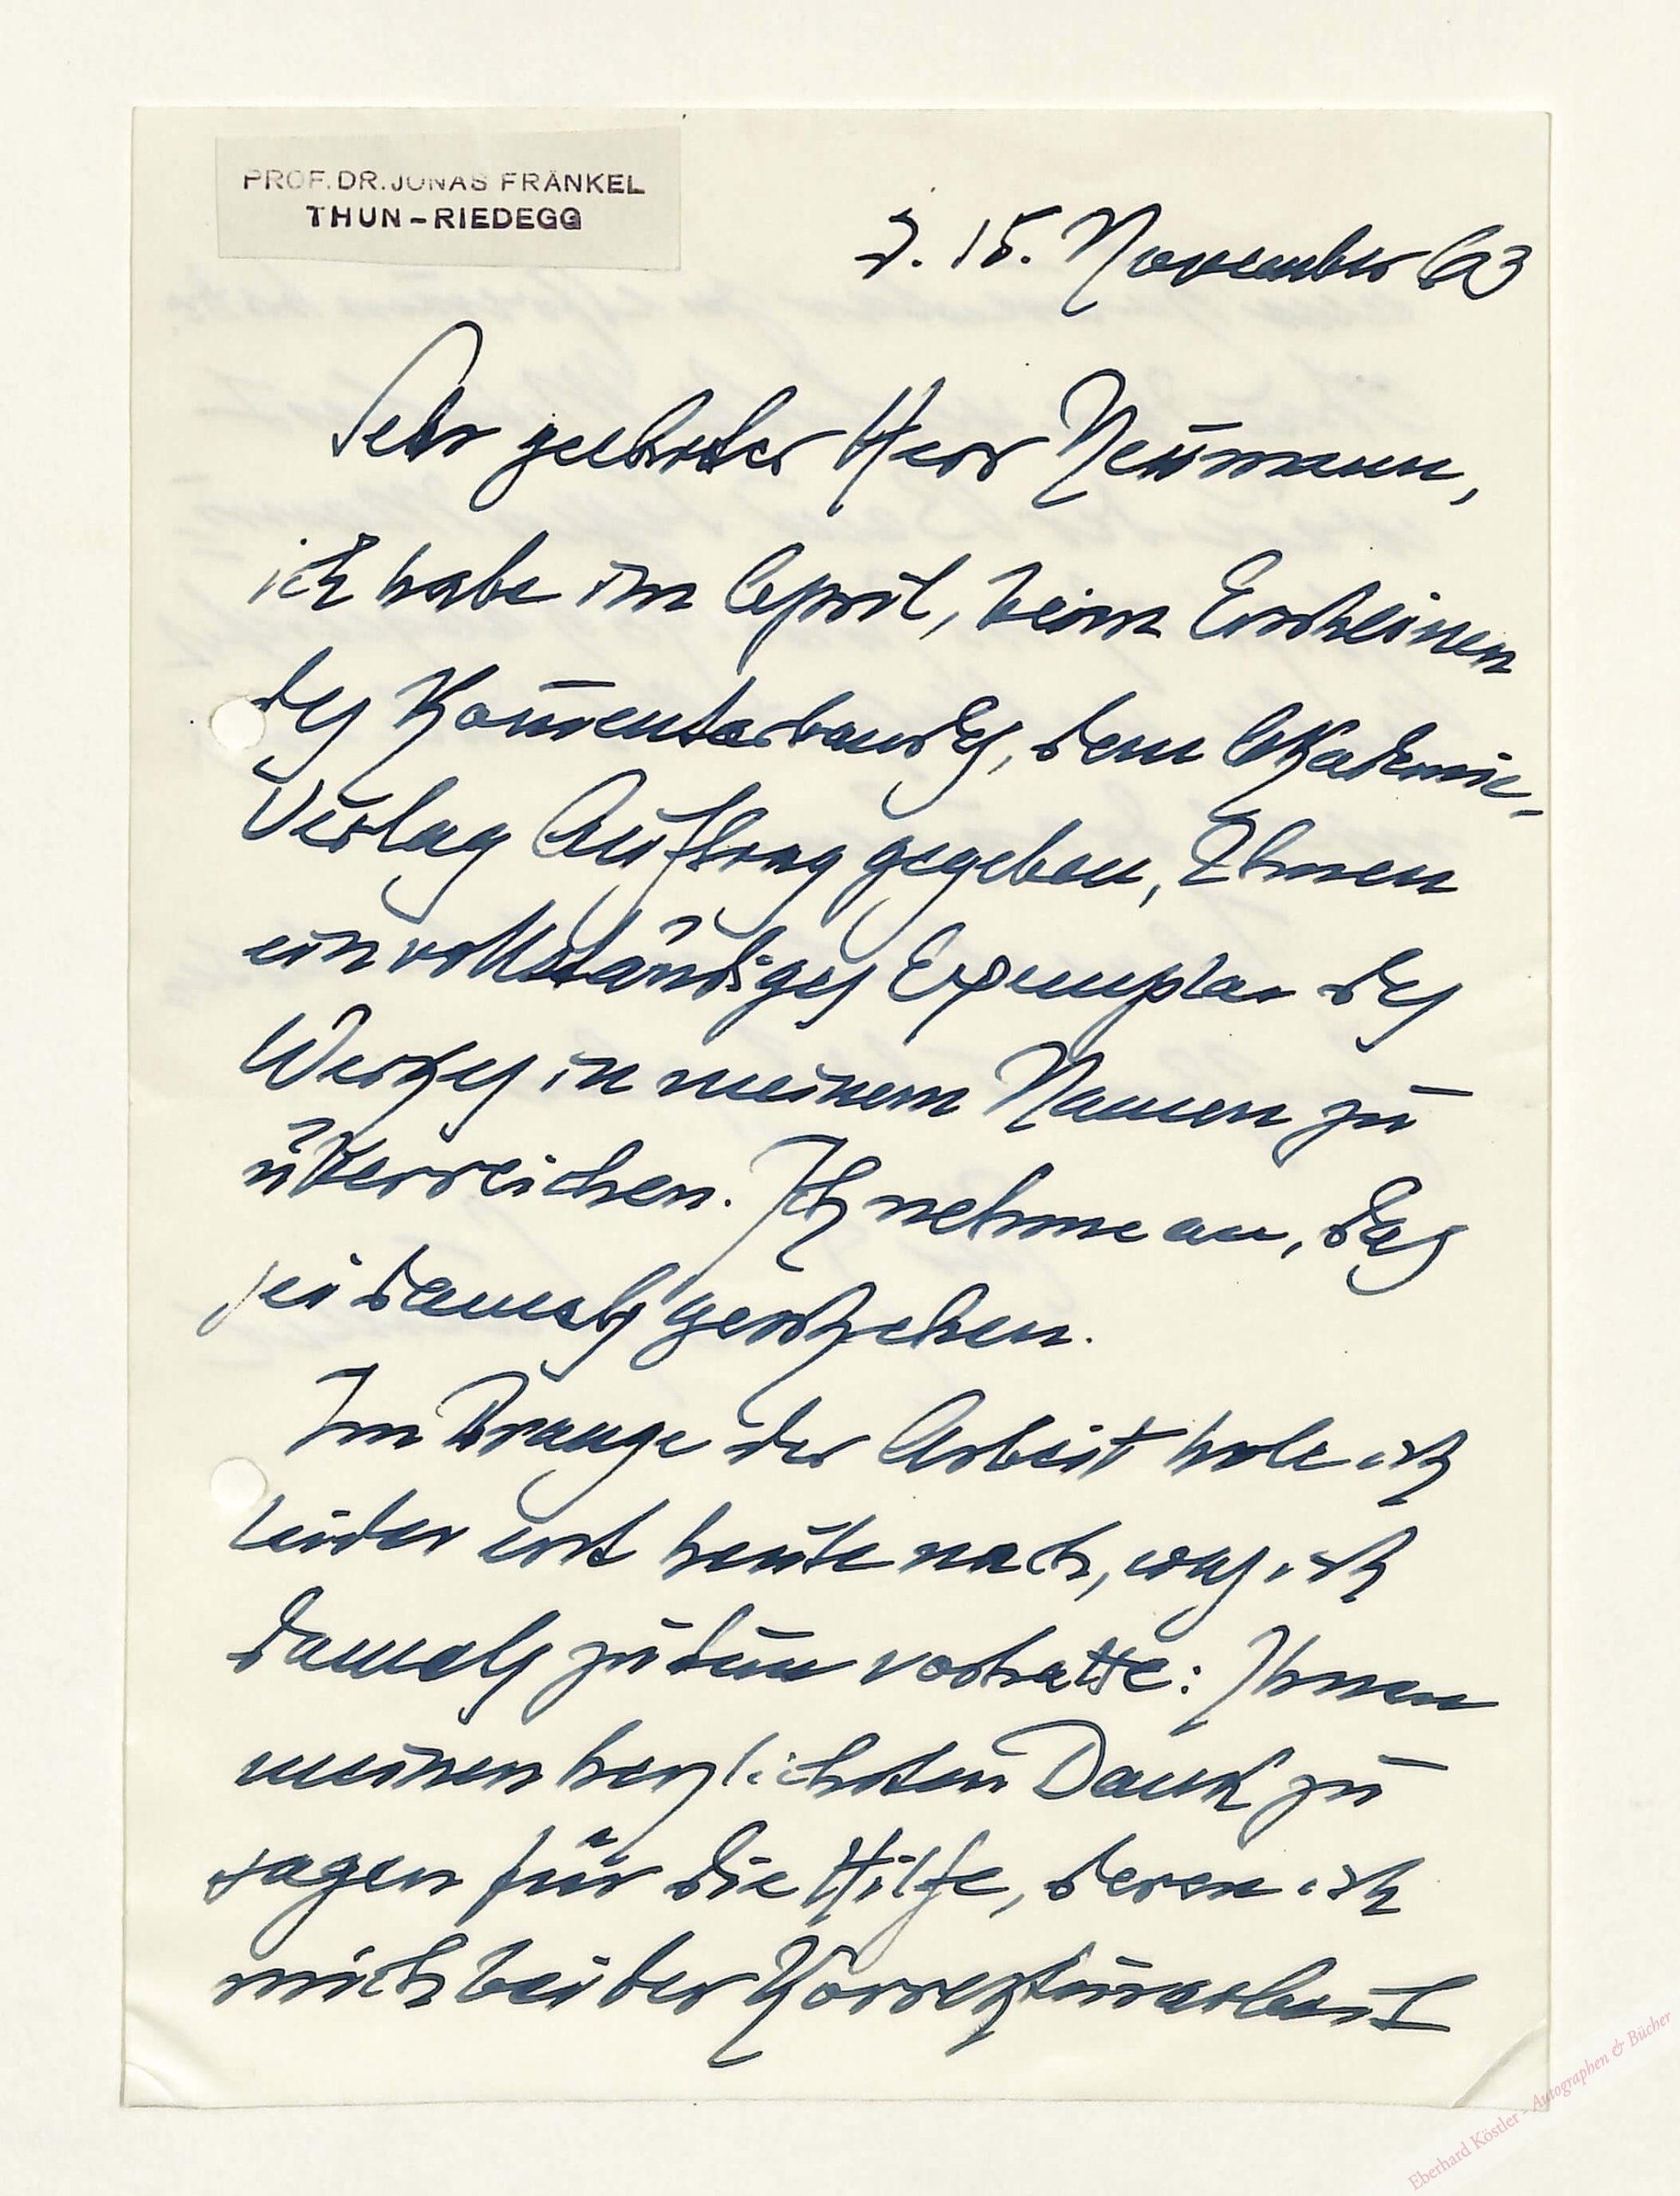 PROF. DR. JONAS FRÄNKEL
THUN-RIEDEGG
15. November 63
Sehr geehrter Herr Neumann,
ich habe im April, beim Erscheinen
des Kom̄entarbandes, dem Akademie-
Verlag Auftrag gegeben, Ihnen
ein vollständiges Exemplar des
Werkes in meinem Namen zu
überreichen. Ich nehme an, das
sei damals geschehen.
Im Drange der Arbeit hole ich
leider erst heute nach, was ich
damals zu tun vorhatte: Ihnen
meinen herzlichsten Dank zu
sagen für die Hilfe, deren ich
mich bei der Korrekturarbeit
Eberhard Köstler - Autographen & Bücher